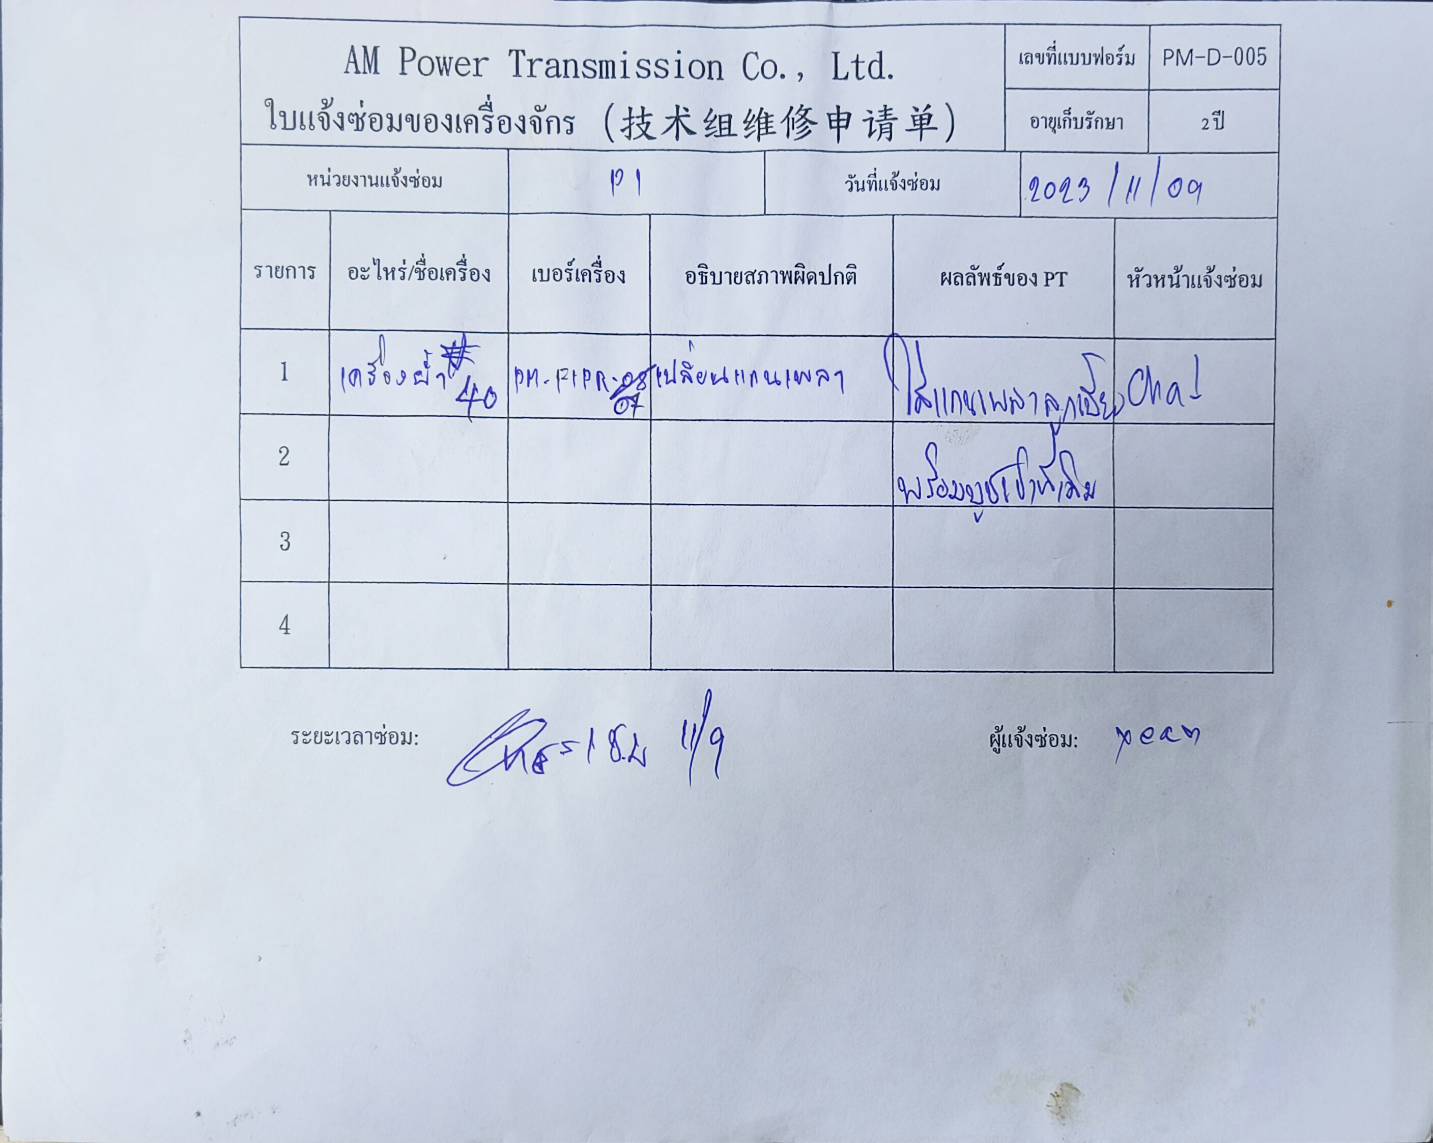 AM Power Transmission Co., Ltd.
ใบแจ้งซ่อมของเครื่องจักร (技术组维修申请单)
เลขที่แบบฟอร์ม PM-D-005
อายุเก็บรักษา 2 ปี
หน่วยงานแจ้งซ่อม P1 วันที่แจ้งซ่อม 2023/11/09
รายการ อะไหร่/ชื่อเครื่อง เบอร์เครื่อง อธิบายสภาพผิดปกติ ผลลัพธ์ของ PT หัวหน้าแจ้งซ่อม
1 เครื่องย้ำ 40 07 เปลี่ยนแกนเพลา ใส่แกนเพลาลูกเบี้ยว
2 พร้อมบูชเข้าที่เดิม
3
4
ระยะเวลาซ่อม: 1 ช.ม 11/9
ผู้แจ้งซ่อม: